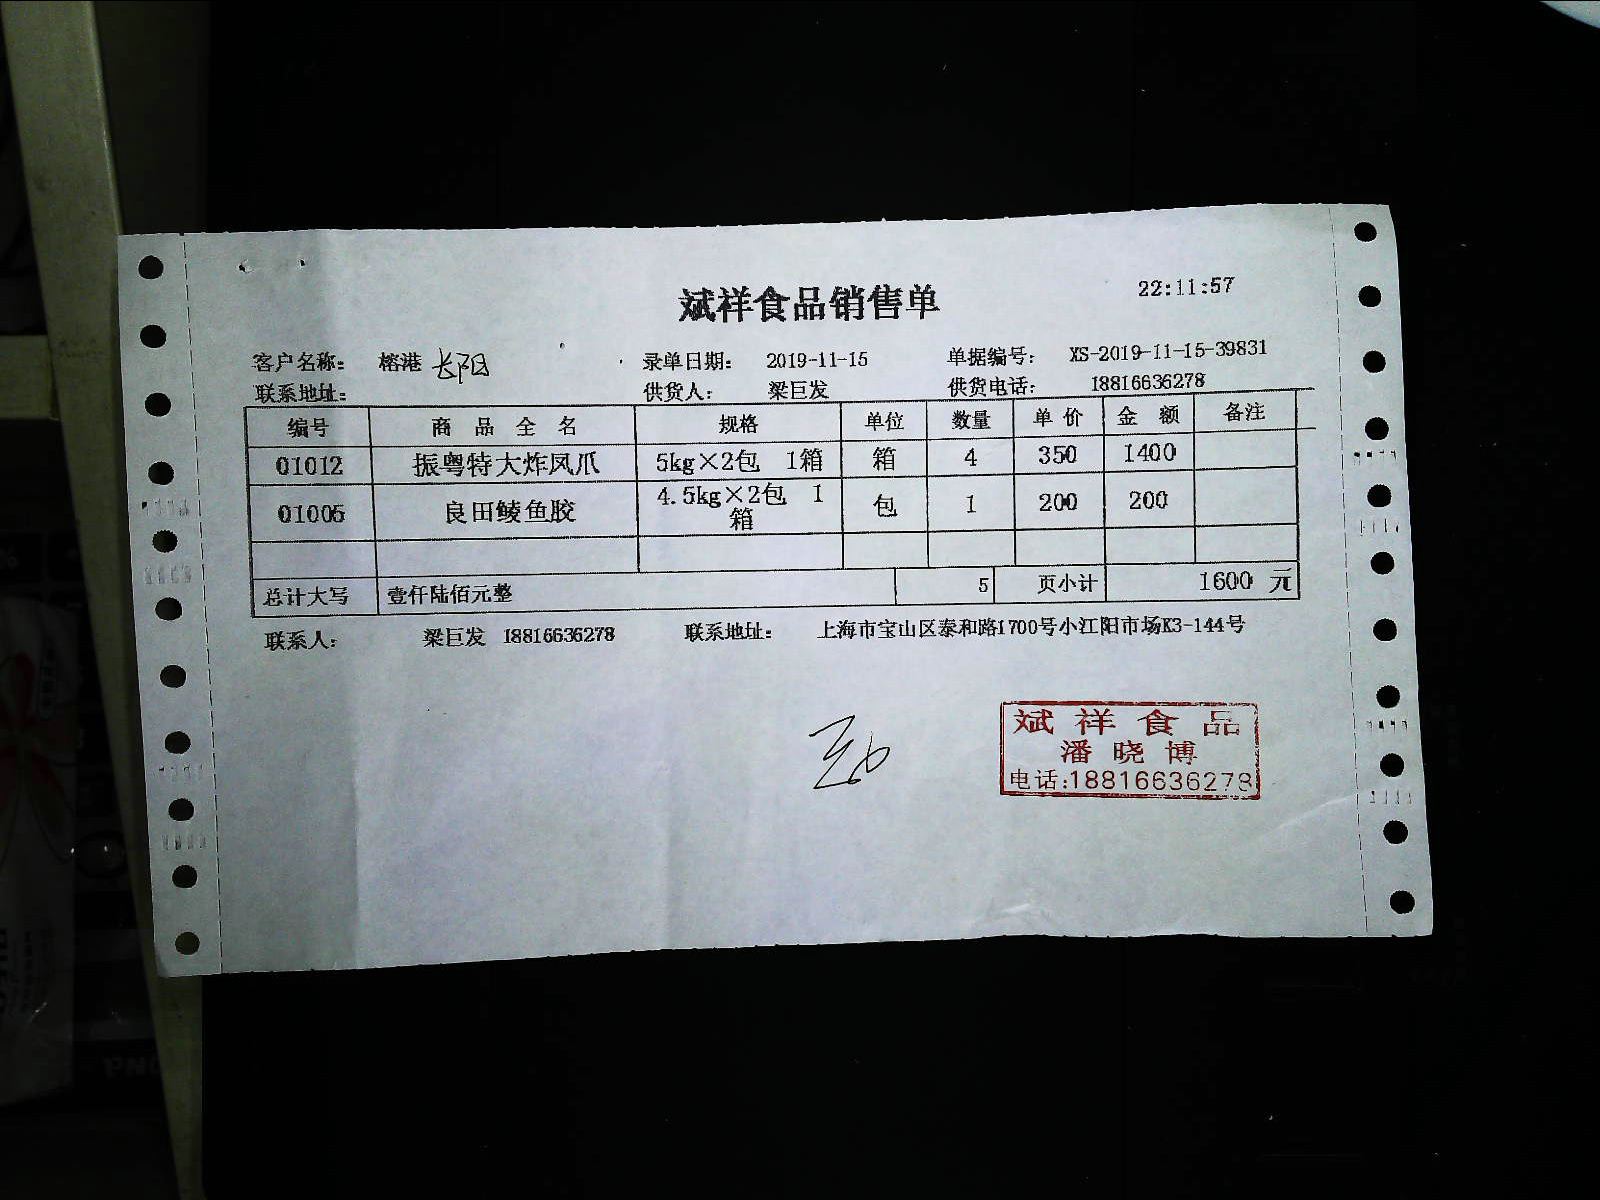 22:11:57
斌祥食品销售单
客户名称： 榕港 长阳 录单日期： 2019-11-15 单据编号： XS-2019-11-15-39831
联系地址： 供货人： 梁巨发 供货电话： 18816636278
编号 商品全名 规格 单位 数量 单价 金额 备注
01012 振粤特大炸凤爪 5kg×2包 1箱 箱 4 350 1400
01005 良田鲮鱼胶 4.5kg×2包 1箱 包 1 200 200
总计大写 壹仟陆佰元整 5 页小计 1600 元
联系人： 梁巨发 18816636278 联系地址： 上海市宝山区泰和路1700号小江阳市场K3-144号
斌祥食品
潘晓博
电话:18816636278